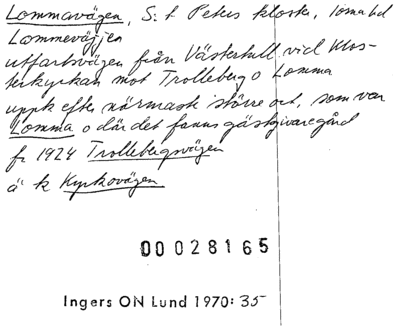 Lommavägen, S:t Peters kloster,
Lommevägjen
utfartsvägen från Västertull vid Klos-
terkyrkan mot Trolleberg o Lomma
uppk efter närmast större ort, som var
Lomma o där det fanns gästgivaregård
fr 1924 Trollebergsvägen
ä k Kyrkovägen
00028165
Ingers ON Lund 1970: 35